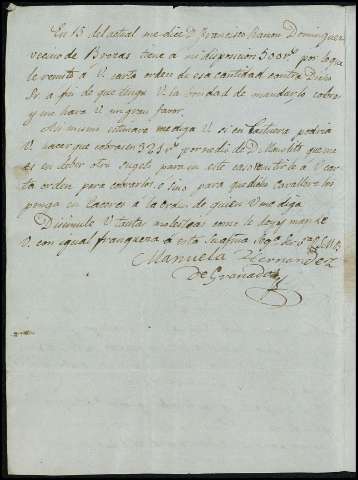 En 15 del actual me dice Dn. Francisco Ramon Dominguez
vecino de Brozas tiene a mi disposicion 500 rs. por lo que
le remito a V carta orden de esa cantidad contra Dicho
Sr. a fin de que tenga V la bondad de mandarlo cobrar
y me hara V un gran favor.
Asi mismo estimare me diga V si en podria
V hacer que cobrasen 321 rs. por medio de D. que me
es en deber otro sugeto para en este caso remitirle a V car
ta orden para cobrarlos, o sino para que dicho Cavallero los
ponga en Caceres a la orden de quien V me diga.
Disimule V tantas molestias como le doy y mande
V. con igual franqueza a esta su afma. Seg.
Manuela Hernandez
De Granada